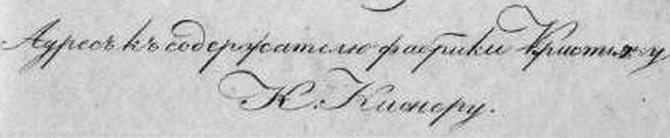 Адресъ къ содержателю фабрики Кристиху
К. Кизнеру.